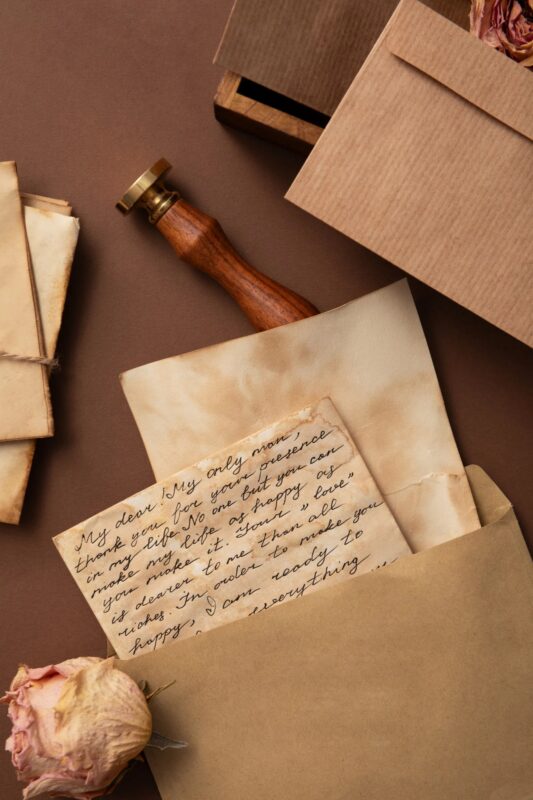 My dear! My only man,
thank you for your presence
in my life. No one but you can
make my life as happy as
you make it. Your „ love"
is dearer to me than all
riches. In order to make you
happy, I am ready to
everything